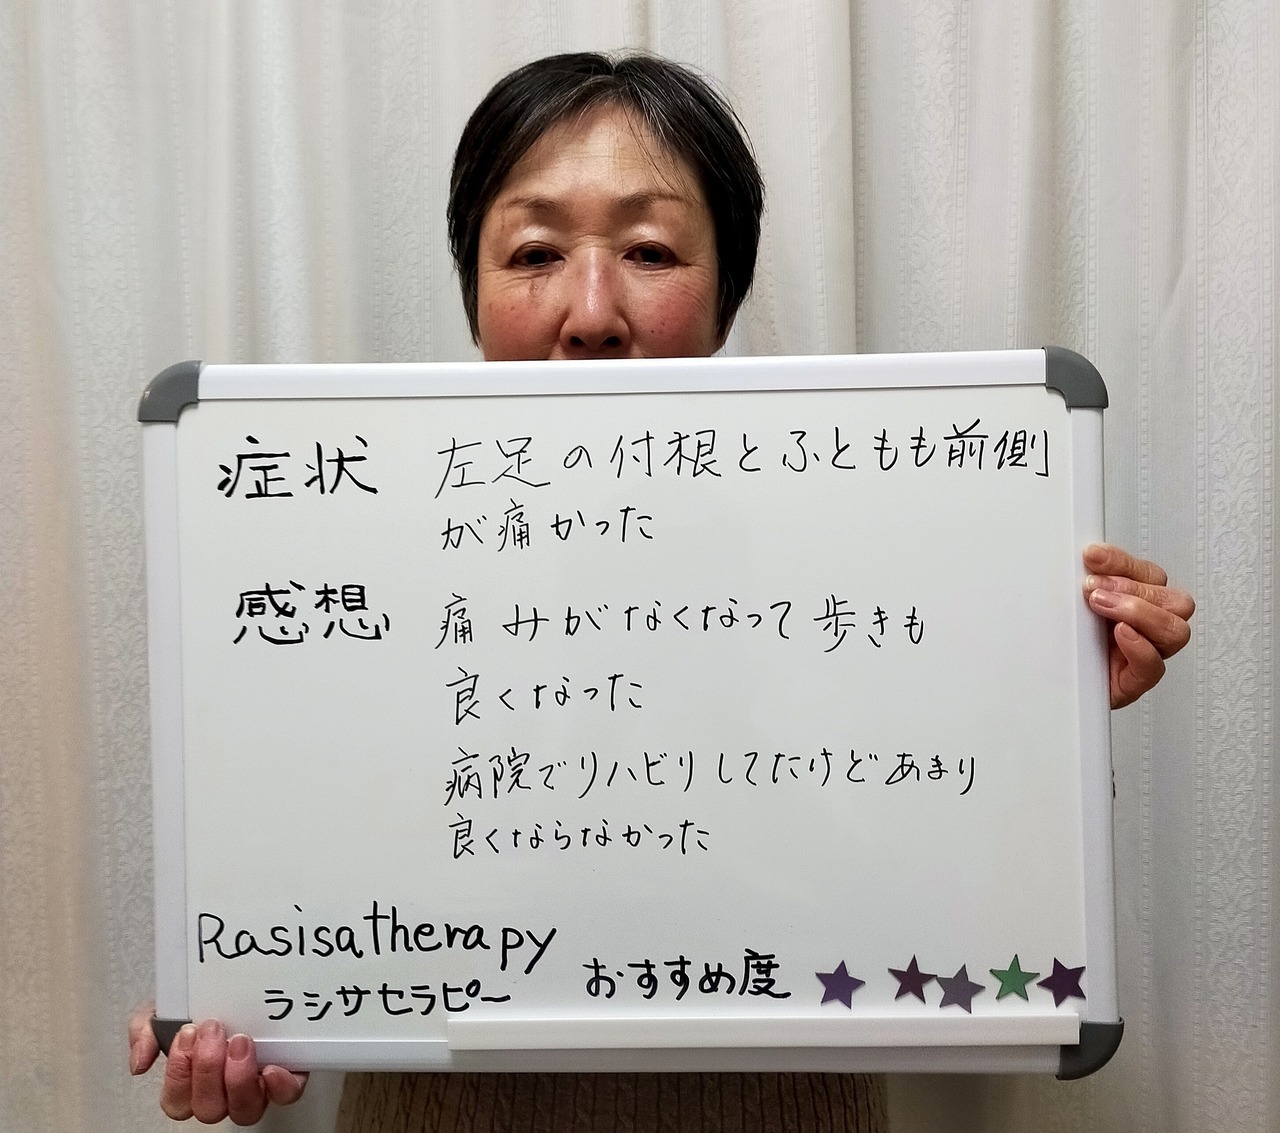 症状 左足の付根とふともも前側
が痛かった
感想 痛みがなくなって歩きも
良くなった
病院でリハビリしてたけどあまり
良くならなかった
Rasisatherapy
ラシサセラピー
おすすめ度 ★★★★★